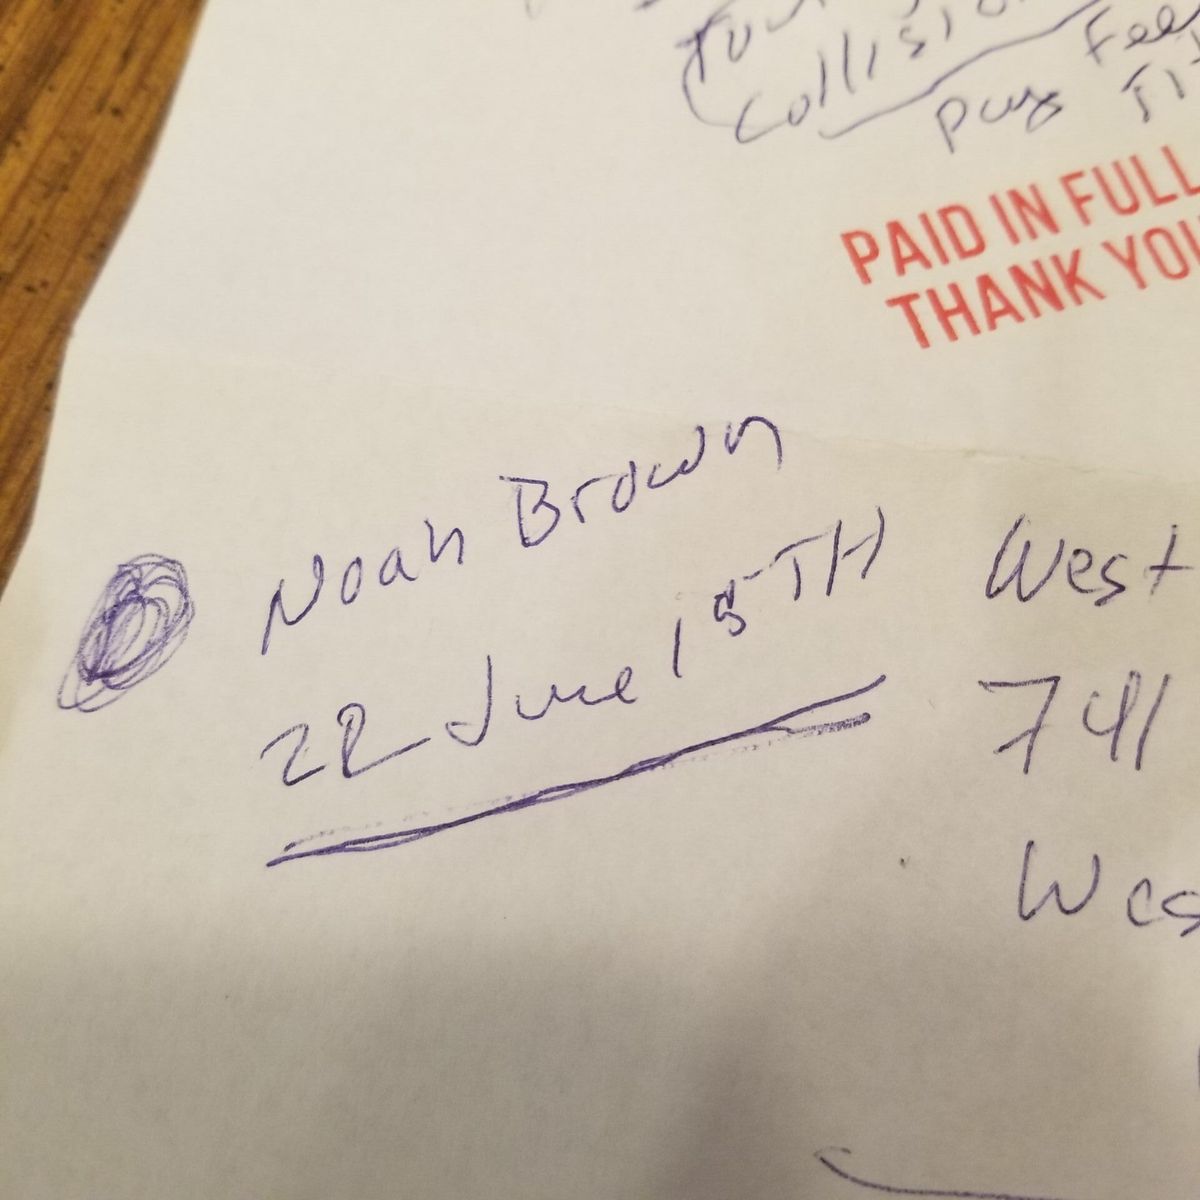 Collision
pays Fee
PAID IN FULL
THANK YOU
Noah Brown
22 June 15TH
West
741
Wes